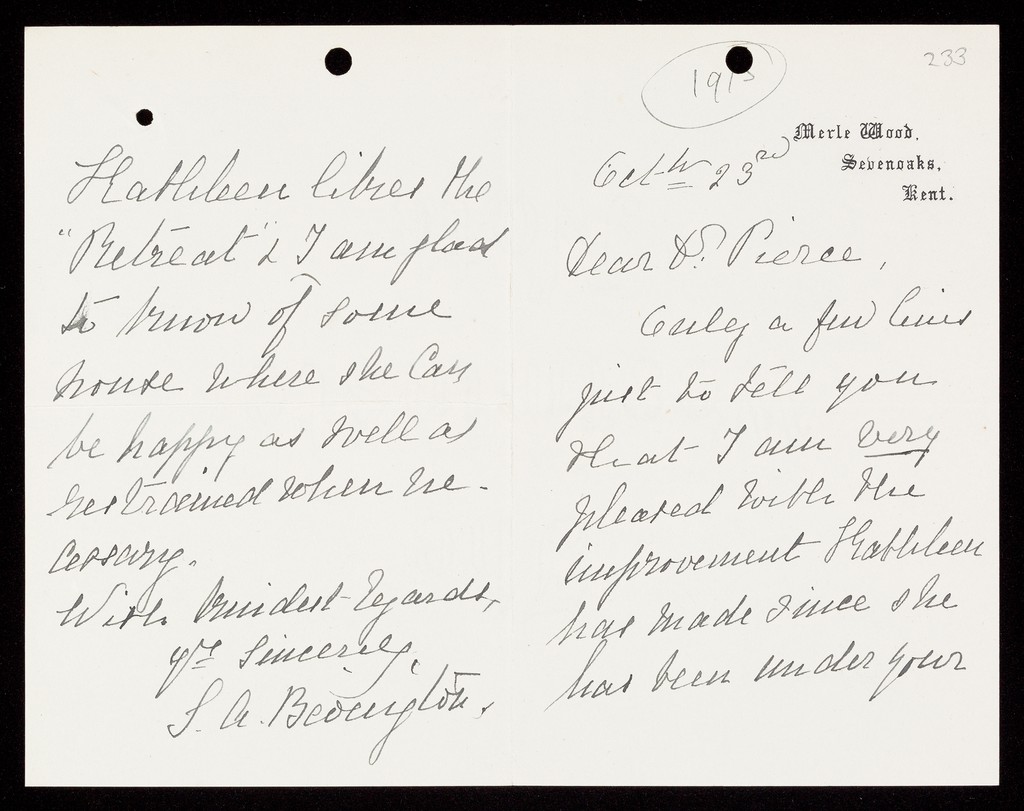 233
1915
Merle Wood,
Sevenoaks,
Kent.
Octbr 23rd
Dear Dr. Pierce,
Only a few lines
just to tell you
that I am very
pleased with the
improvement Kathleen
has made since she
has been under your
Kathleen likes the
"Retreat" & I am glad
to know of some
house where she can
be happy as well as
restrained when ne-
cessary.
With kindest regards,
yrs sincerely,
S. A. Bevington.